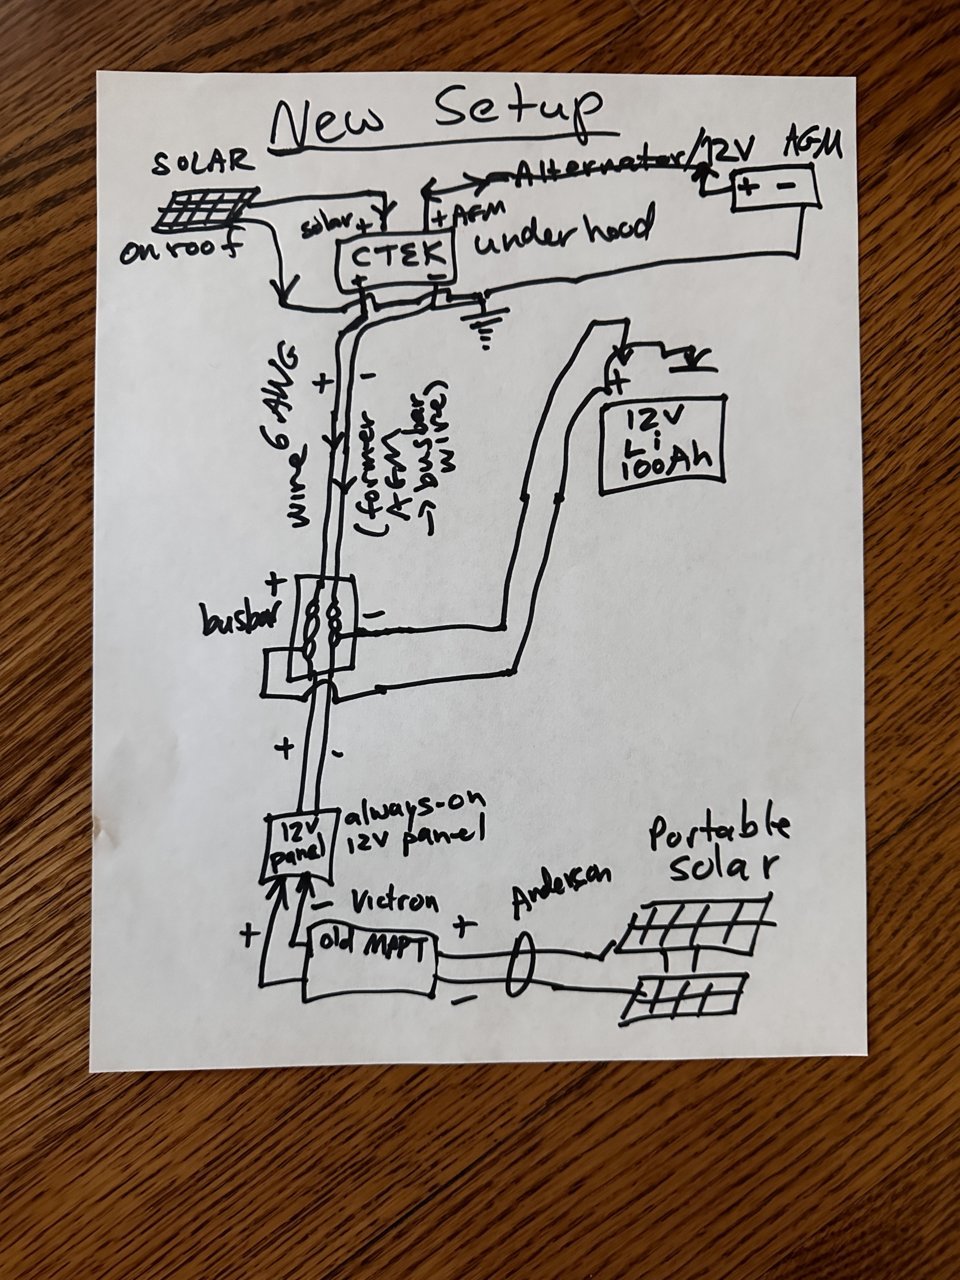 New Setup
SOLAR
on roof
Alternator/12V
AGM
+ -
solar+
+AGM
CTEK
+ -
under hood
wire 6 AWG
+ -
(former
AGM
→ busbar
wire)
+
12V
Li
100Ah
+
busbar
-
+ -
12V
panel
always-on
12V panel
Portable
solar
+ -
Victron
old MPPT
+
-
Anderson